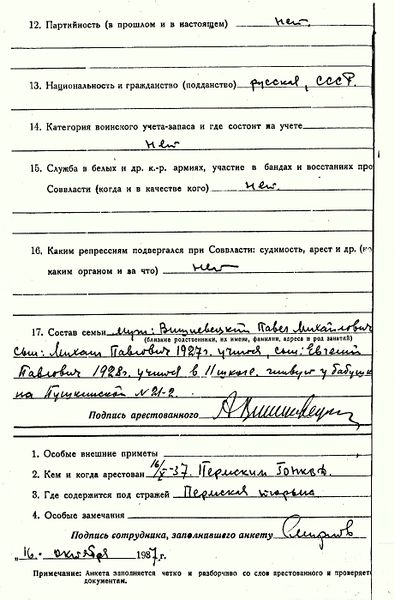 12. Партийность (в прошлом и в настоящем) нет.
13. Национальность и гражданство (подданство) русская, СССР.
14. Категория воинского учета-запаса и где состоит на учете
нет
15. Служба в белых и др. к.-р. армиях, участие в бандах и восстаниях про
Соввласти (когда и в качестве кого) нет.
16. Каким репрессиям подвергался при Соввласти: судимость, арест и др. (ко
каким органом и за что) нет
17. Состав семьи муж: Вишневецкий Павел Михайлович
(близкие родственники, их имена, фамилии, адреса и род занятий)
сын: Михаил Павлович 1927г. учится, сын: Евгений
Павлович 1928г. учится в 11 школе, живут у бабушк
на Пушкинской N 21-2.
Подпись арестованного
1. Особые внешние приметы
2. Кем и когда арестован 16/X-37. Пермским Горотд.
3. Где содержится под стражей Пермская тюрьма
4. Особые замечания
Подпись сотрудника, заполнавшего анкету Смирнов
„16" октября 1937 г.
Примечание: Анкета заполняется четко и разборчиво со слов арестованного и проверяетс
документам.